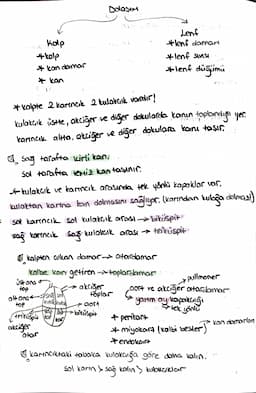 Dolaşım
Kalp
Lenf
*kalp
*lenf damarı
*kan damar
*lenf sıvısı
*kan
*lenf düğümü
*kalpte 2 karıncık 2 kulakçık vardır!
kulakçık üstte, akciğer ve diğer dokulardan kanın toplandığı yer.
karıncık altta. akciğer ve diğer dokulara kanı taşır.
Sağ tarafta kirli kan,
Sol tarafta temiz kan taşınır.
*kulakcık ve karıncık arasında tek yönlü kapaklar var.
kulaktan karına kan dolmasını sağlıyor. (karından kulağa dolmasın)
sol karıncık sol kulakcık arası → biküspit
sağ karıncık sağ kulakcık arası → triküspit
kalpten çıkan damar → atardamar
kalbe kan getiren → toplardamar
pulmoner
aort ve akciğer atardamarı
yarım ay kapakçığı
→ tek yönlü
akciğer
toplar
aort
biküspit
triküspit
akciğer
atar
+ perikart
* miyokard (kalbi besler)
kan damarları
* endokart
karıncıktaki tabaka kulakcığa göre daha kalın.
sol karın > sağ karın > kulakcıklar